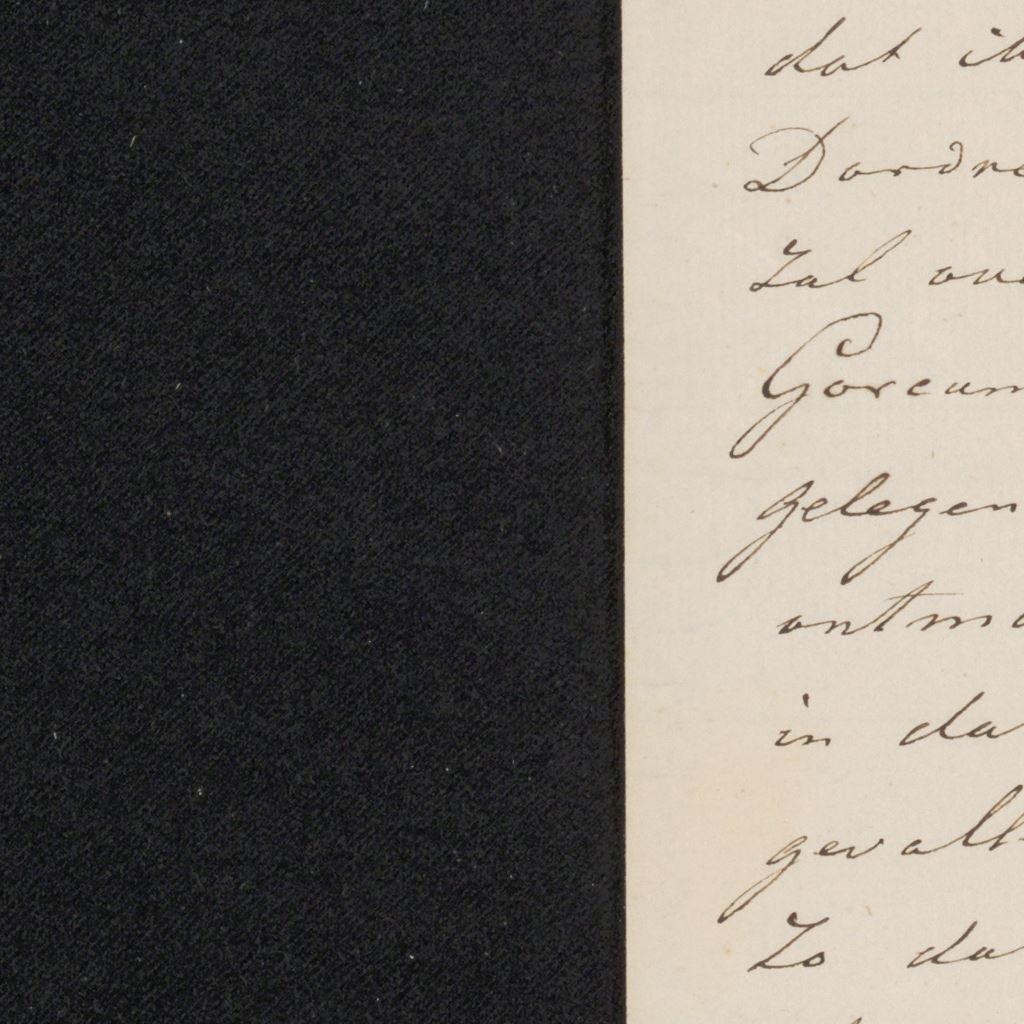 dat ik
Dordre
Zal ove
Gorcum
gelegen
ontmo
in da
gevall
Zo da